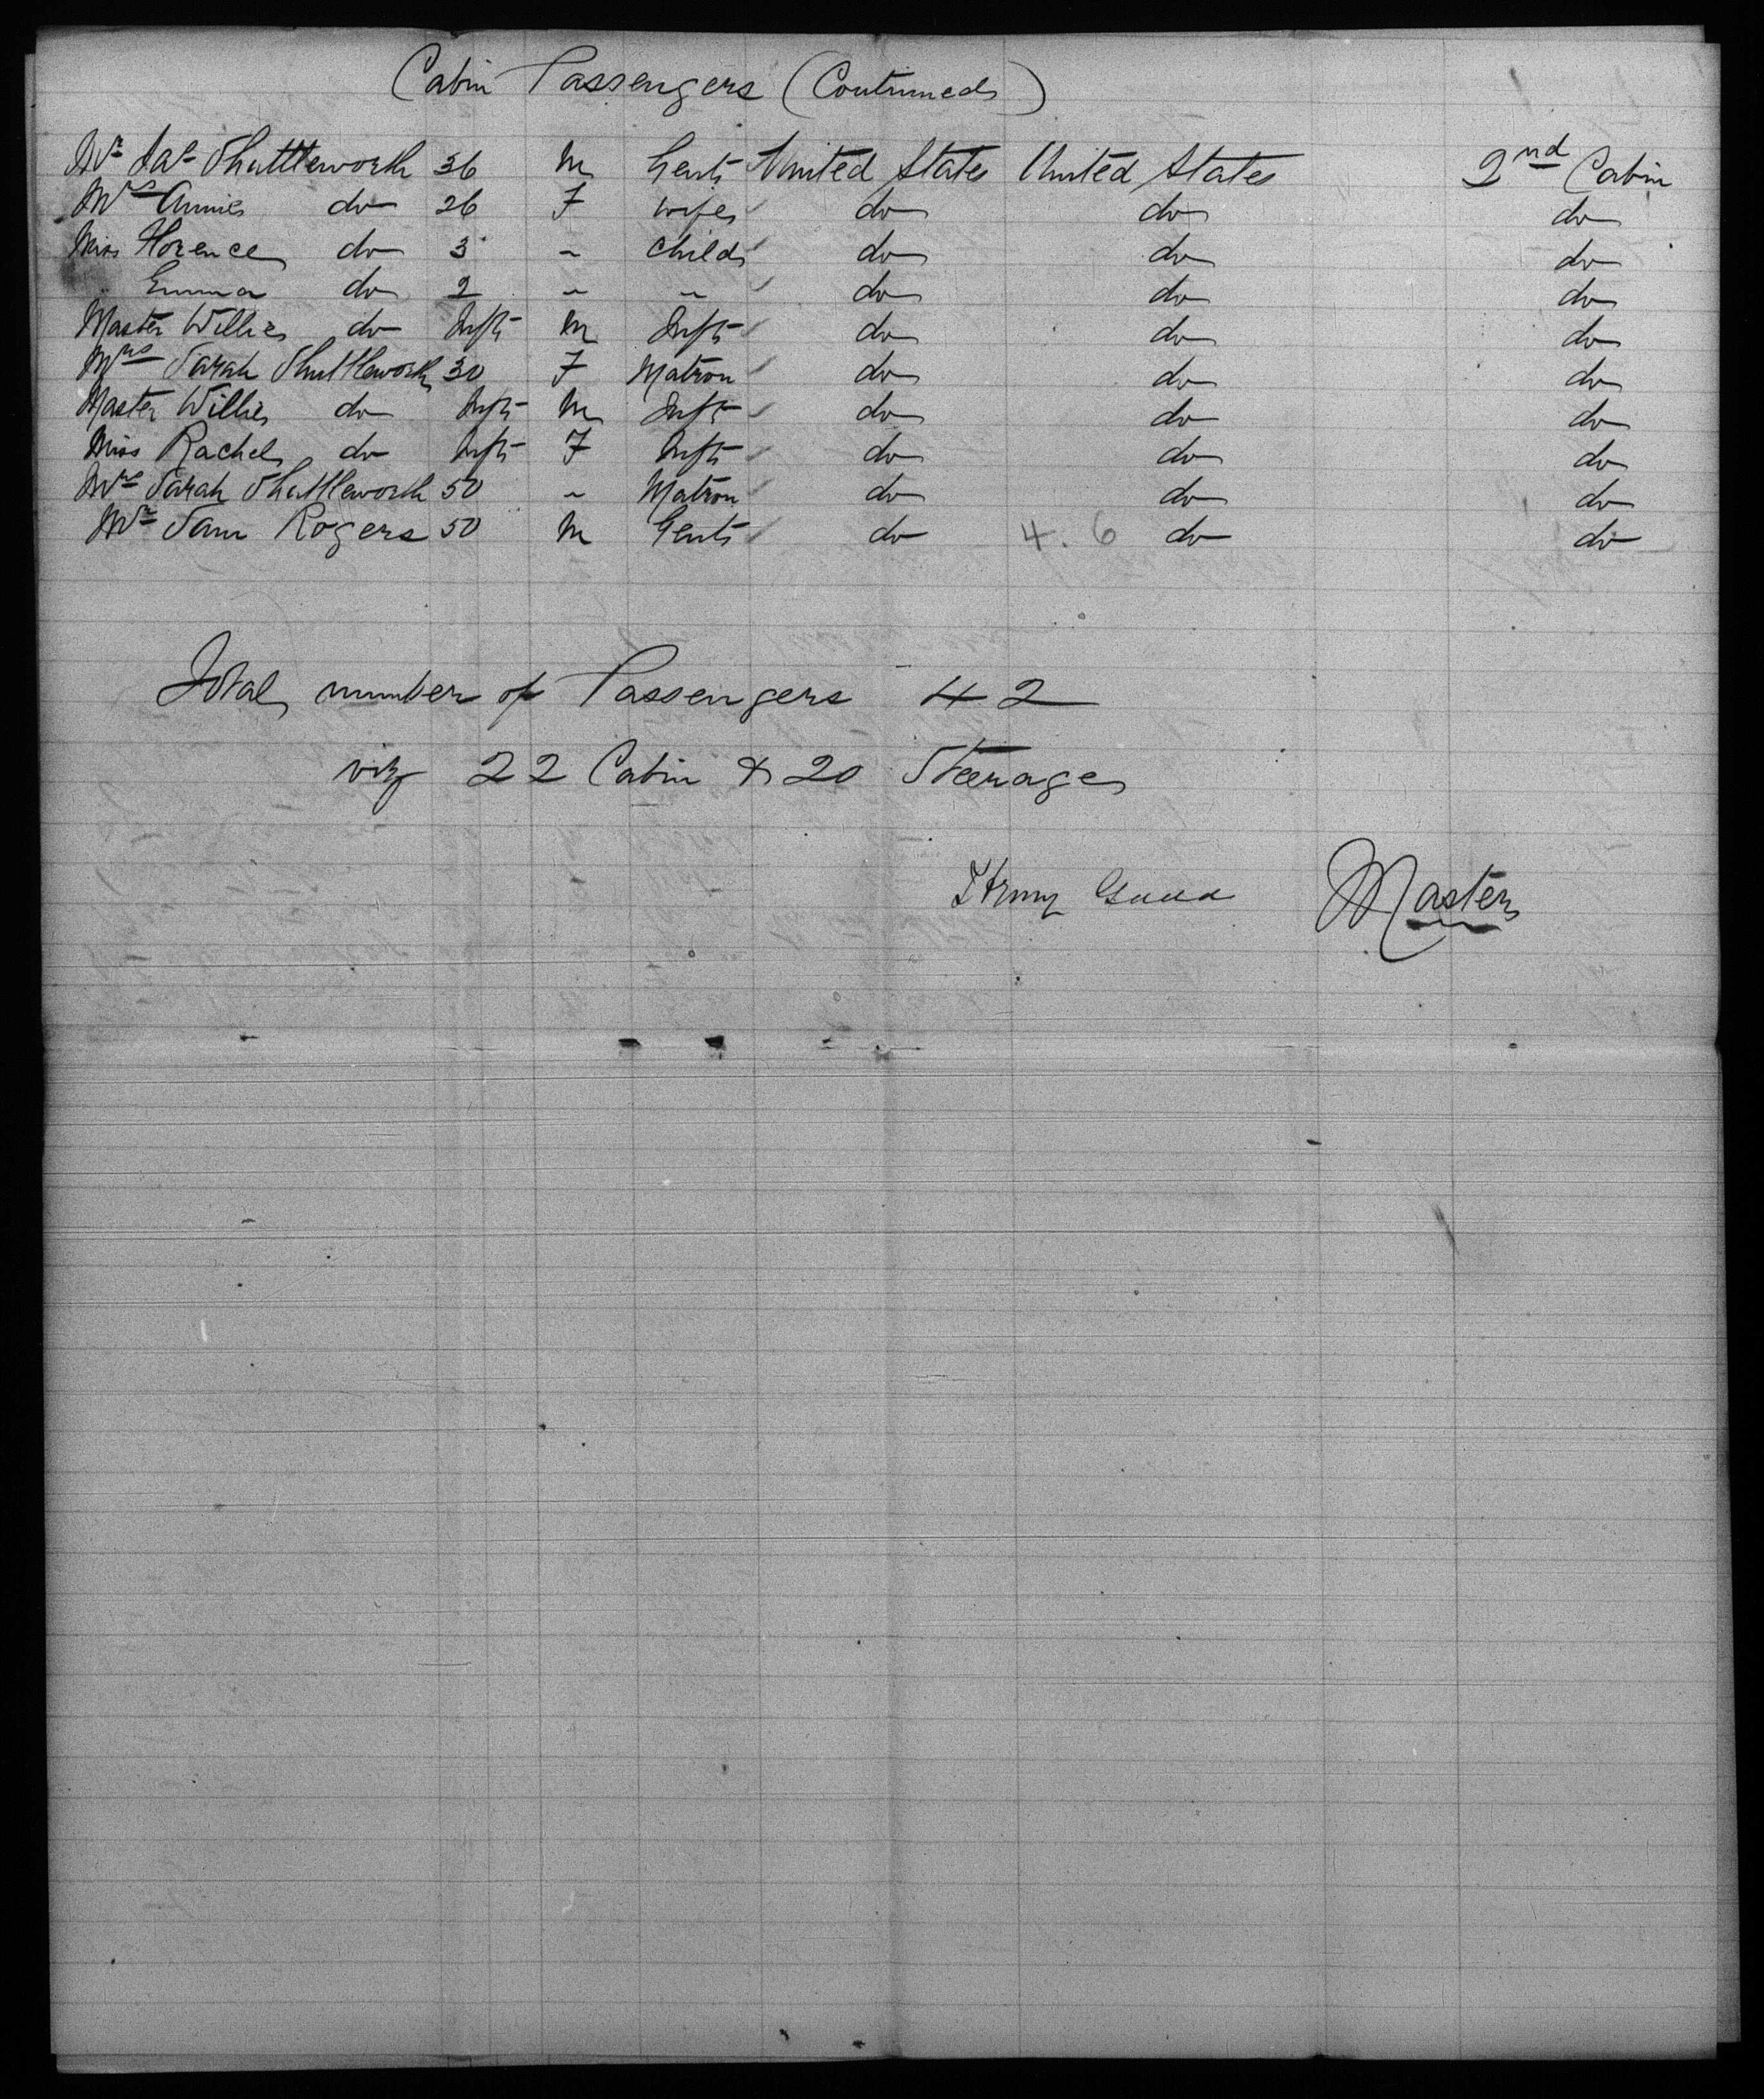 Cabin Passengers (Continued)
Mr Jas Shuttleworth 36 M Gent United States United States 2nd Cabin
Mrs Annie do 26 F wife do do do
Miss Florence do 3 " child do do do
" Emma do 2 " " do do do
Master Willie do Inft M Inft do do do
Mrs Sarah Shuttleworth 30 F Matron do do do
Master Willie do Inft M Inft do do do
Miss Rachel do Inft F Inft do do do
Mrs Sarah Shuttleworth 50 " Matron do do do
Mr Sam Rogers 50 M Gent do 4. 6 do do
Total number of Passengers 42
viz 22 Cabin & 20 Steerage
Master